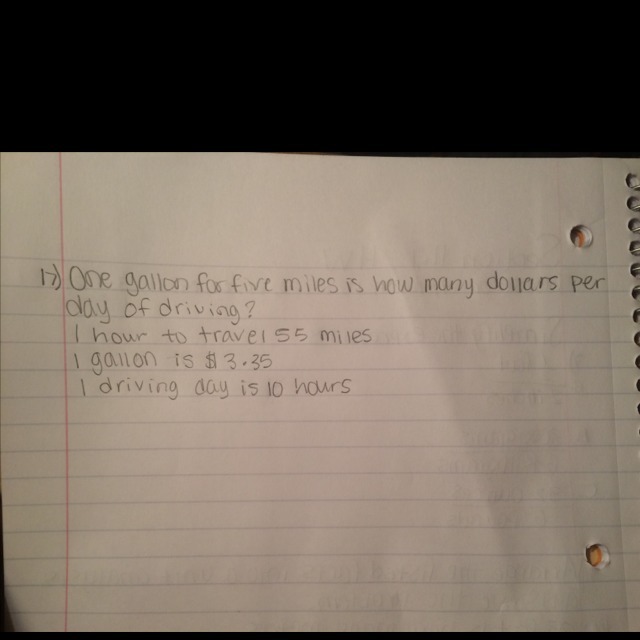 1.) One gallon for five miles is how many dollars per
day of driving?
1 hour to travel 55 miles
1 gallon is $3.35
1 driving day is 10 hours